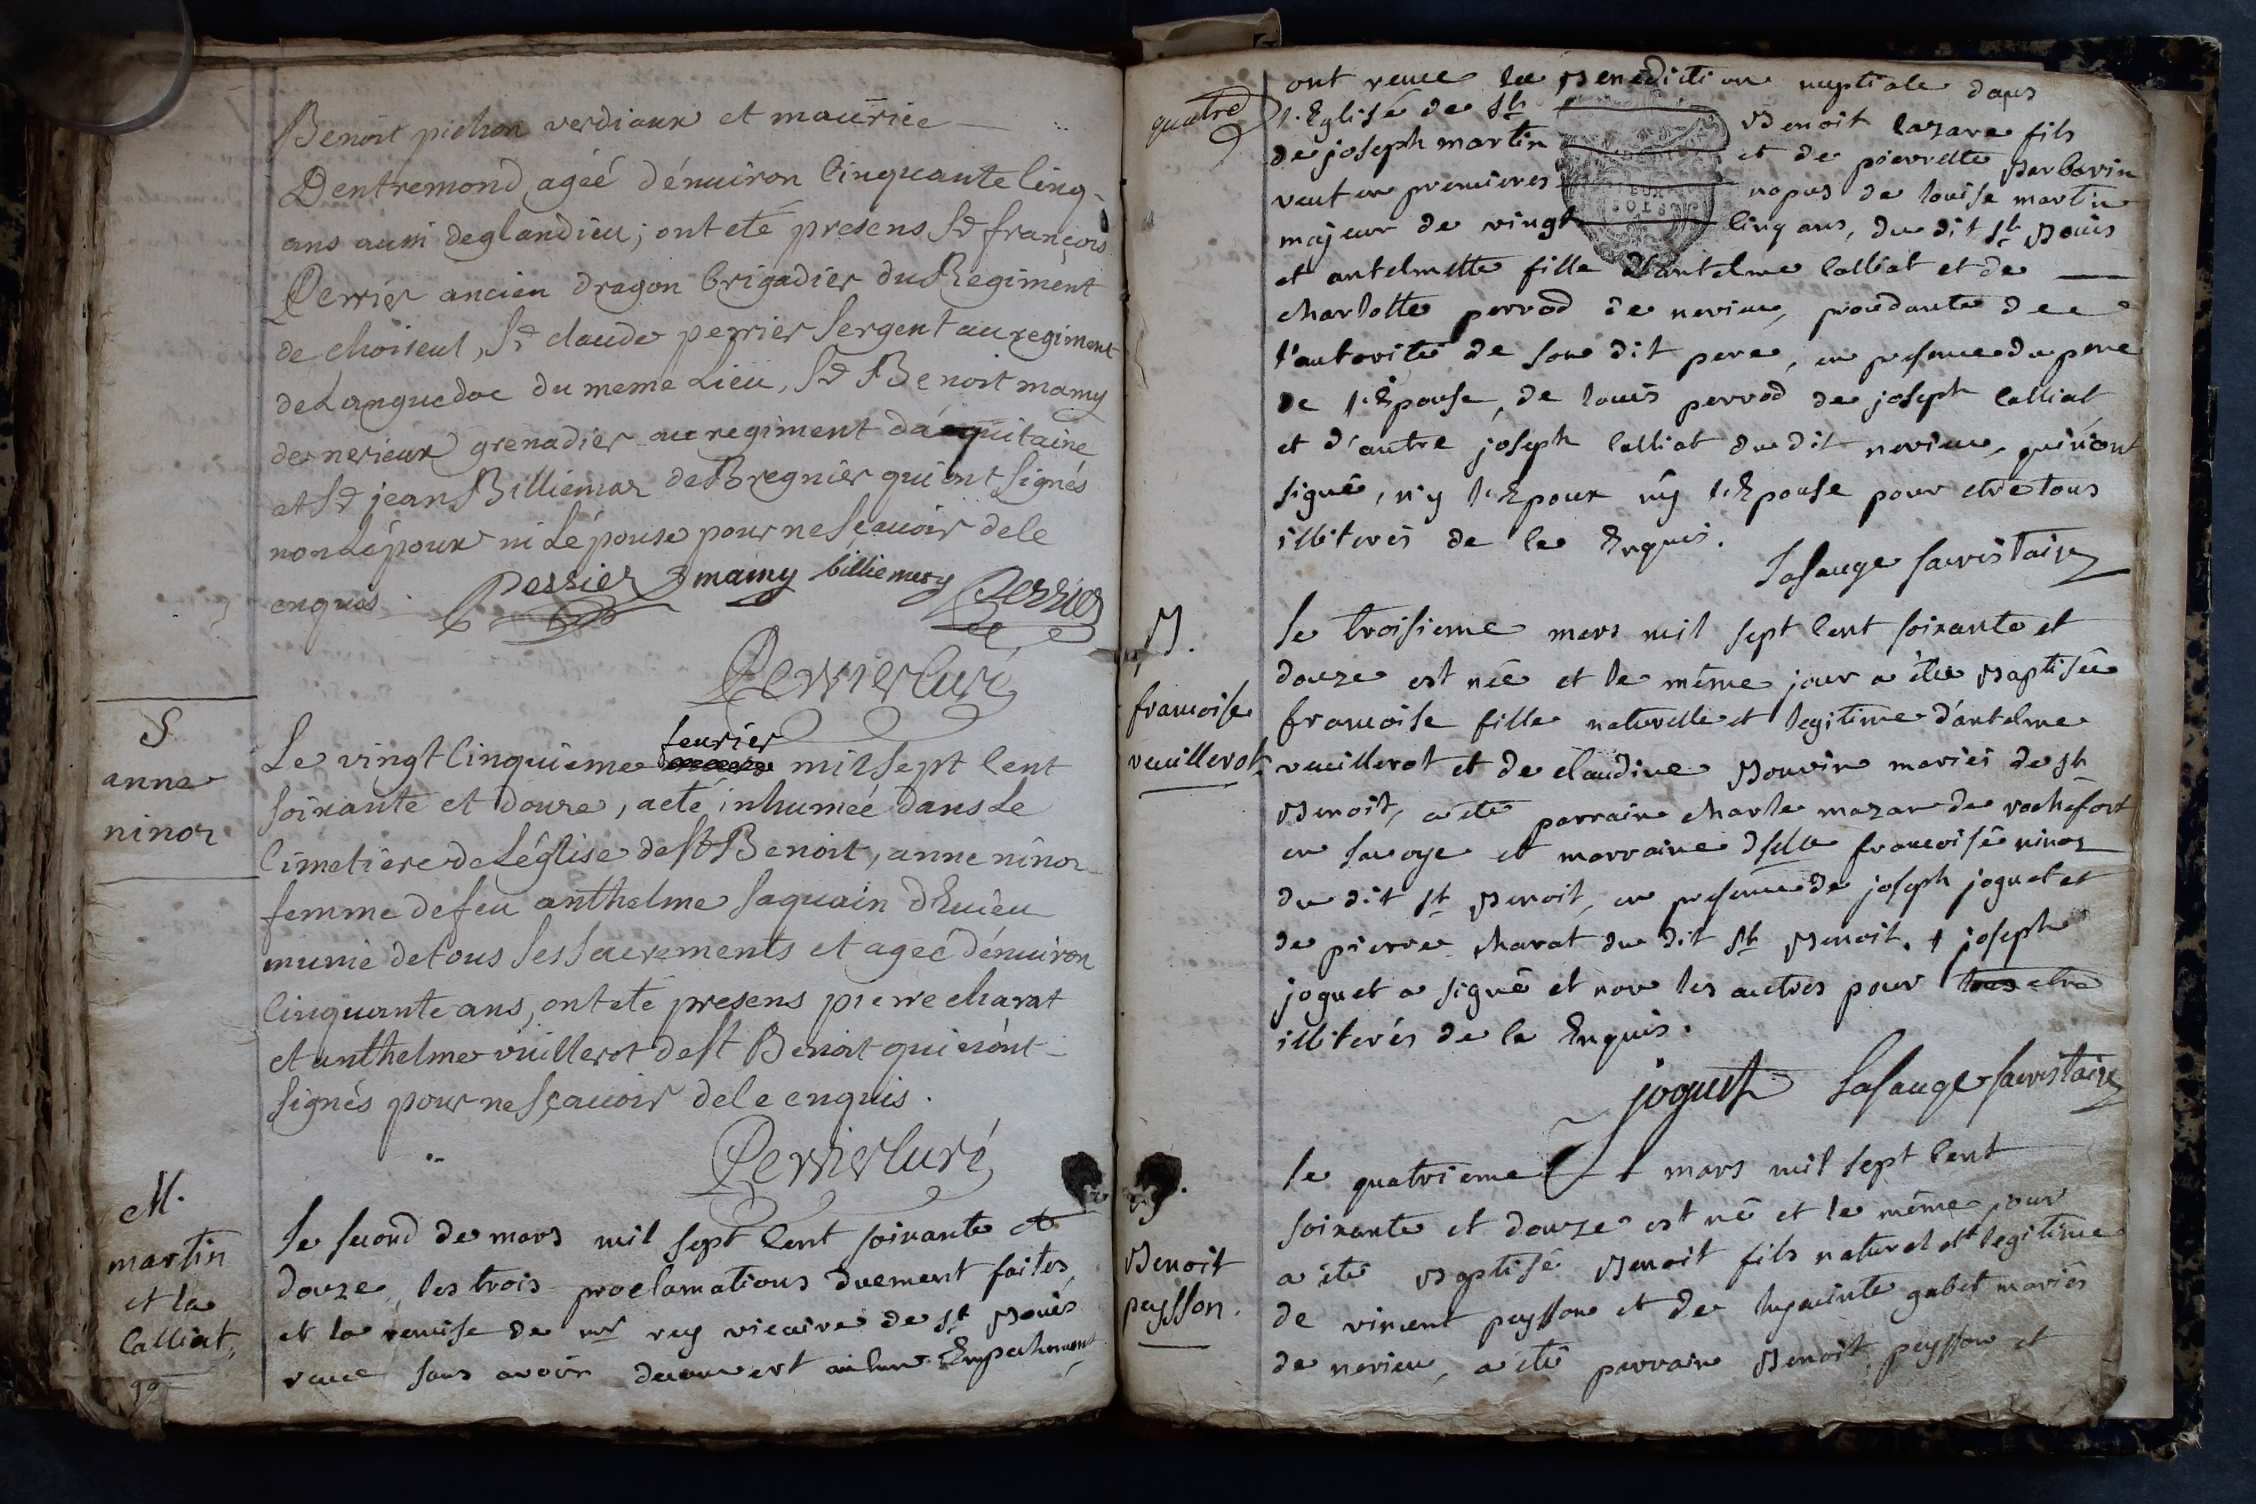 Benoît pichon verdiaux et maurice
Dentremond, agéé dénuiron Cinquante Cinq
ans aussi deglandieu; ont eté presens Sr françois
Perrier ancien dragon brigadier du Regiment
de choiseul, Sr claude perrier Sergent au regiment
de Languedoc du meme Lieu, Sr Benoit mamy
de nerieux grenadier au regiment dáquitaine
et Sr jean Billiemaz de Bregnier qui ont Signés
non Lépoux ni Lépouse pour ne Sçauoir dele
enquis. Perrier mamy billiemaz Perrier
Perrier Curé
S
anne
ninoz
Le vingt Cinquieme feurier mil Sept Cent
soixante et douze, a eté inhuméé dans Le
Cimetière de Léglise de St Benoit, anne ninoz
femme de feu anthelme Saquain d'Euieu
munie de tous Ses Sacrements et ageé dénuiron
Cinquante ans, ont eté presens pierre charat
et anthelme vuillerot de St Benoit qui nónt
Signés pour ne Sçauoir dele enquis.
Perrier Curé
M.
martin
et la
Calliat
Le second de mars mil sept Cent soixante et
douze, les trois proclamations duement faites
et la remise de mr rey vicaire de St Bouis
reuce sans avoir decouvert aucun Empechement
quatre
ont reuce la Benediction nuptiale dans
l'Eglise de St Benoit lazare fils
de joseph martin et de pierrette Barbarin
veut en premieres nopces de louise martin
majeur de vingt Cinq ans, du dit St Bouis
et antelmette fille d'antelme Calliat et de
charlotte perrod de nerieu, procedante de
l'autorité de son dit pere, en presence du pere
de l'Epouse, de louis perrod de joseph Calliat
et d'autre joseph Calliat du dit nerieu, qui n'ont
signé, n'y l'Epoux n'y l'Epouse pour etre tous
illiterés de ce Enquis.
Lasauge sacristain
B.
francoise
vuillerot
Le troisieme mars mil sept Cent soixante et
douze est neé et le même jour a été Baptisée
francoise fille naturelle et legitime d'antelme
vuillerot et de claudine Bouvin mariés de St
Benoit, a été parrain charle mazan de rochefort
en savoye et marraine dslle francoise ninoz
du dit St Benoit, en presence de joseph joguet et
de pierre charat du dit St Benoit. + joseph
joguet a signé et non les autres pour etre
illiterés de ce Enquis.
joguet Lasauge sacristain
Benoit
peysson.
Le quatrieme mars mil sept Cent
soixante et douze est né et le même jour
a été Baptisé Benoit fils naturel et legitime
de vincent peysson et de hyacinte gubet mariés
de nerieu, a été parrain Benoit peysson et